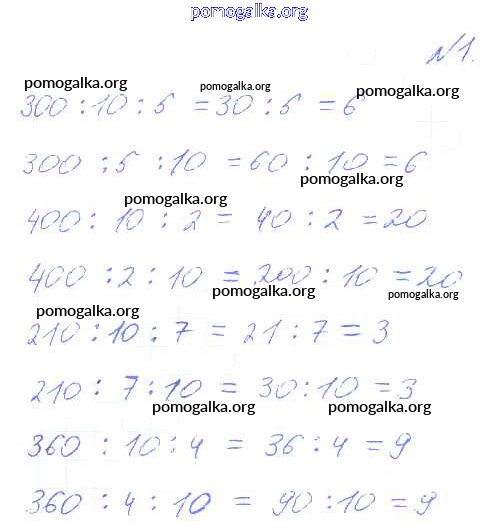 pomogalka.org
N1.
pomogalka.org pomogalka.org pomogalka.org
300 : 10 : 5 = 30 : 5 = 6
300 : 5 : 10 = 60 : 10 = 6
pomogalka.org
pomogalka.org
400 : 10 : 2 = 40 : 2 = 20
400 : 2 : 10 = 200 : 10 = 20
pomogalka.org pomogalka.org
pomogalka.org
210 : 10 : 7 = 21 : 7 = 3
210 : 7 : 10 = 30 : 10 = 3
pomogalka.org pomogalka.org
360 : 10 : 4 = 36 : 4 = 9
360 : 4 : 10 = 90 : 10 = 9